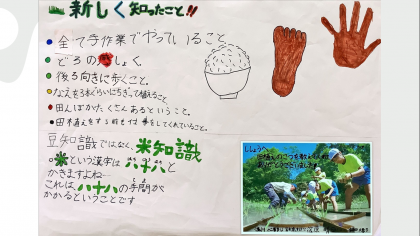 新しく知ったこと!!
全て手作業でやっていること
どろの感しょく。
後ろ向きに歩くこと。
なえを3本ぐらいにちぎって植えること。
田んぼがたくさんあるということ。
豆知識ではなく米知識
米という漢字は八十八と
かきますよね…
これは八十八の手間が
かかるということです
ししょうへ
田植えのこつを教えてくれて
ありがとうございました